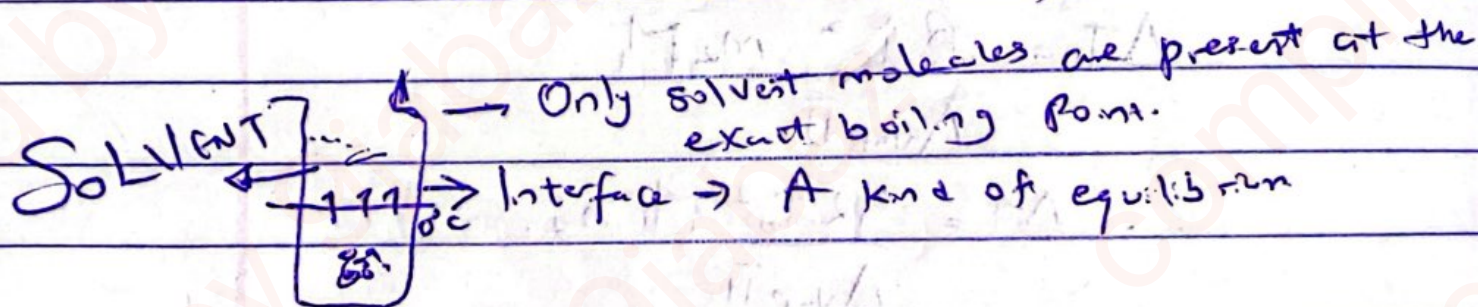 → Only solvent molecules are present at the
exact boiling point.
SOLVENT
→ Interface → A kind of equilibrium